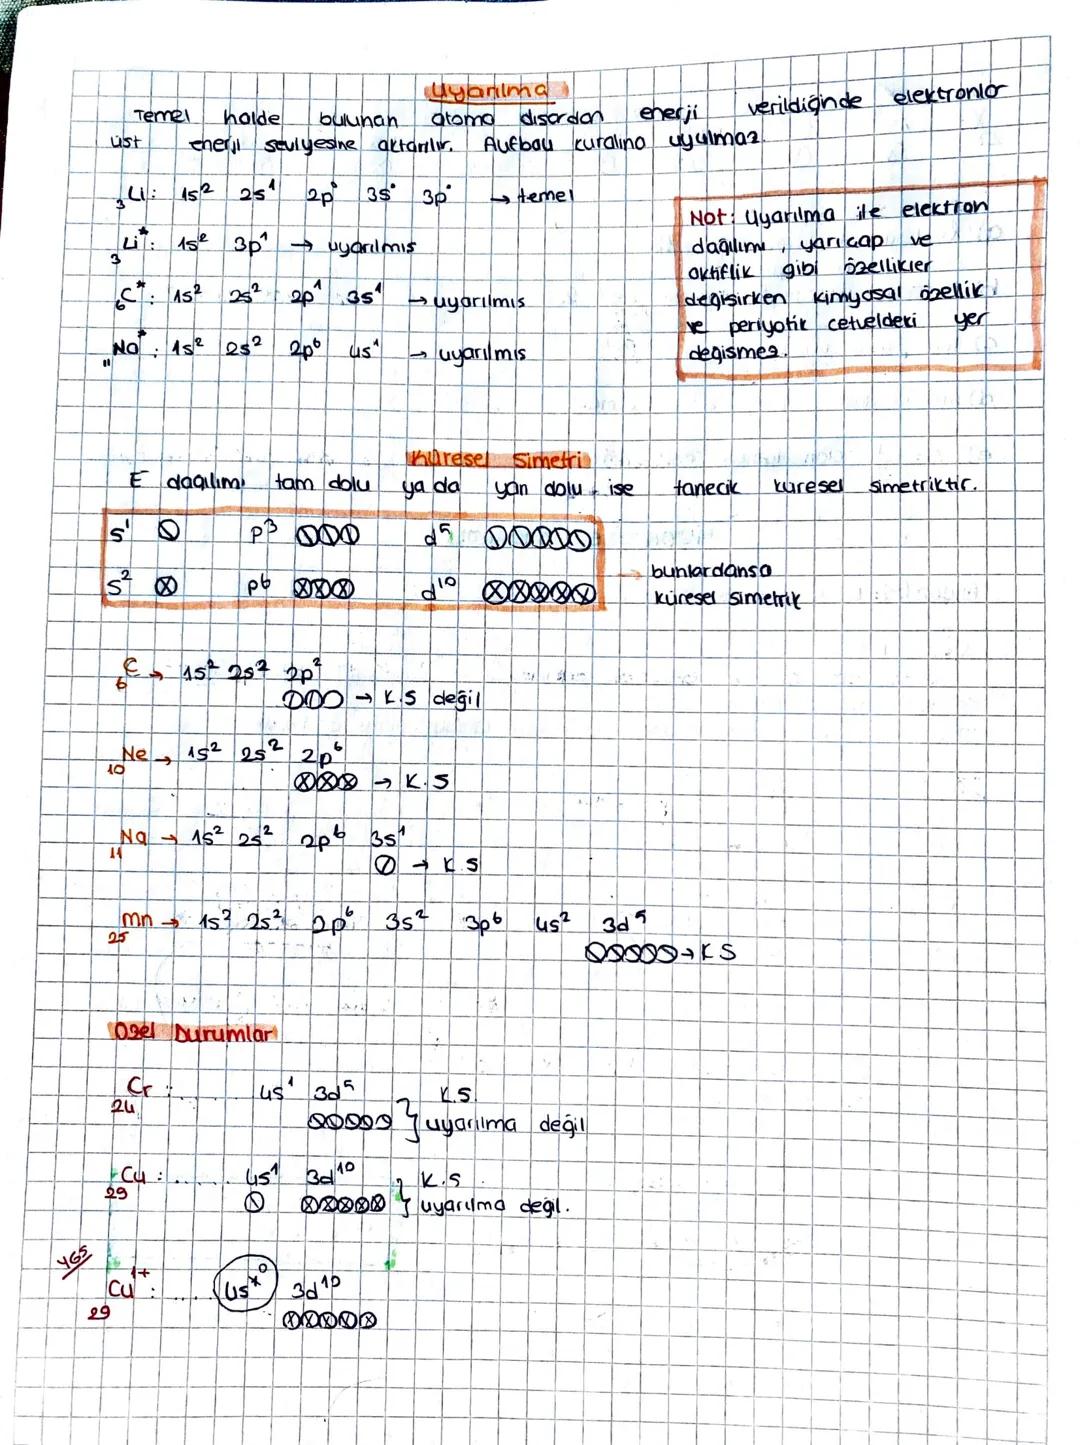 Uyarılma
Temel halde bulunan atoma dısardan enerji verildiğinde elektronlar
üst enerji seviyesine aktarılır. Aufbau kuralına uyulmaz.
₃Li: 1s² 2s¹ 2p⁰ 3s⁰ 3p⁰ → temel
₃Li*: 1s² 3p¹ → uyarılmıs
₆C*: 1s² 2s² 2p¹ 3s¹ → uyarılmıs
₁₁Na*: 1s² 2s² 2p⁶ 4s¹ → uyarılmıs
Not: Uyarılma ile elektron
dağılımı, yarıcap ve
aktiflik gibi özellikler
değisirken kimyasal özellik
ve periyotik cetveldeki yer
degismez.
Küresel Simetri
E dagılımı tam dolu ya da yarı dolu ise tanecik küresel simetriktir.
s¹ p³ d⁵
s² p⁶ d¹⁰
→ bunlardansa
küresel simetrik
₆C → 1s² 2s² 2p²
→ K.S değil
₁₀Ne → 1s² 2s² 2p⁶
→ K.S
₁₁Na → 1s² 2s² 2p⁶ 3s¹
→ K.S
₂₅Mn → 1s² 2s² 2p⁶ 3s² 3p⁶ 4s² 3d⁵
→ K S
Özel Durumlar
₂₄Cr : ...... 4s¹ 3d⁵ K.S.
} uyarılma değil
₂₉Cu : ...... 4s¹ 3d¹⁰ K.S
} uyarılma degil.
YGS
₂₉Cu¹⁺ : .... 4s*⁰ 3d¹⁰